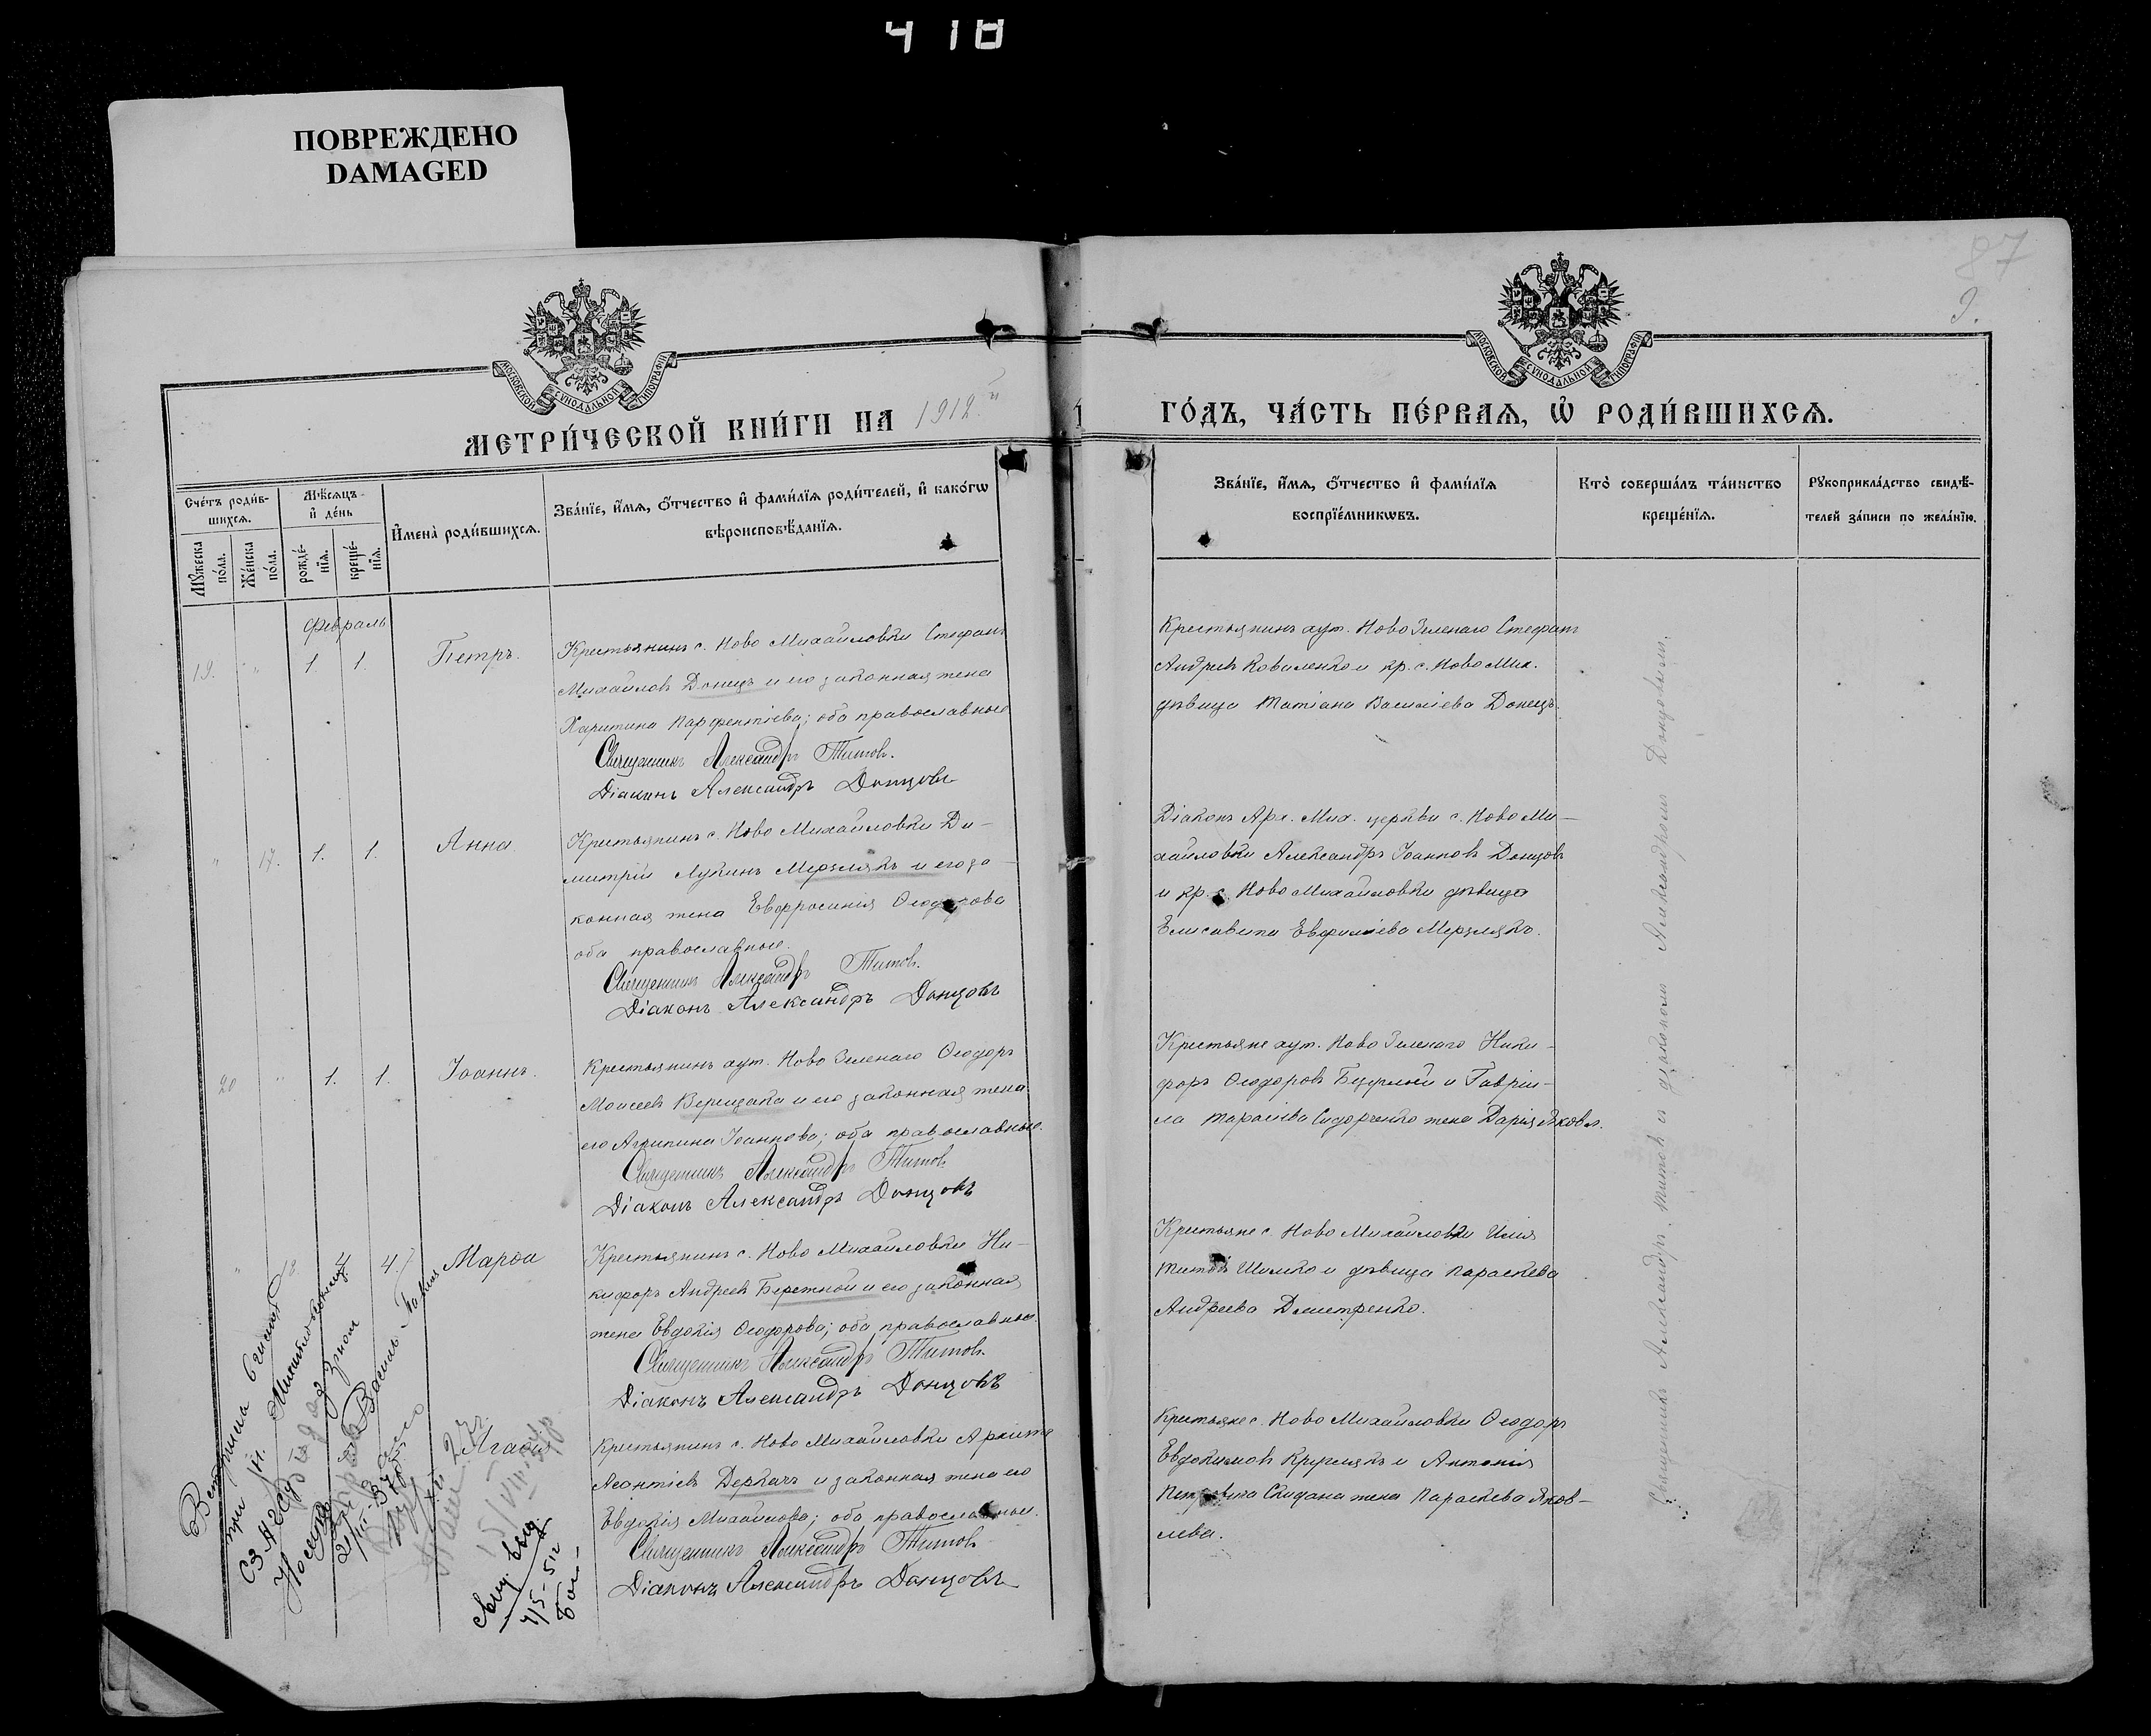 418
ПОВРЕЖДЕНО
DAMAGED
87
9.
МОСКОВСКОЙ СѴНОДАЛЬНОЙ ТИПОГРАФІИ
МОСКОВСКОЙ СѴНОДАЛЬНОЙ ТИПОГРАФІИ
МЕТРИ́ЧЕСКОЙ КНИ́ГИ НА 1912.й
ГО́ДЪ, ЧА́СТЬ ПЕ́РВАЯ, Ѡ҆ РОДИ́ВШИХСѦ.
Сче́тъ роди́в-
шихсѧ.
Мѣ́сѧцъ
и҆ де́нь
И҆мена̀ роди́вшихсѧ.
Зва́нїе, и҆́мѧ, ѻ҆́тчество и҆ фами́лїѧ роди́телей, и҆ како́гѡ
вѣроисповѣ́данїѧ.
Мꙋ́жеска
по́ла.
Же́нска
по́ла.
рожде́-
нїѧ.
креще́-
нїѧ.
Зва́нїе, и҆́мѧ, ѻ҆́тчество и҆ фами́лїѧ
воспрїе́мникѡвъ.
Кто̀ соверша́лъ та́инство
креще́нїѧ.
Рꙋкоприкла́дство свидѣ́-
телей за́писи по жела́нїю.
Февраль
19. " 1. 1. Петръ.
Крестьянинъ с. Ново Михайловки Стефанъ
Михайловъ Донецъ и его законная жена
Харитина Парфентіева; оба православные
Священникъ Александръ Титовъ.
Діаконъ Александръ Донцовъ
Крестьянинъ хут. Ново Зеленаго Стефанъ
Андріевъ Коваленко и кр. с. Ново Мих.
дѣвица Татіана Василіева Донецъ.
" 17. 1. 1. Анна
Крестьянинъ с. Ново Михайловки Ди-
митрій Лукинъ Мерзлякъ и его за-
конная жена Евфросинія Ѳеодорова
оба православные.
Священникъ Александръ Титовъ.
Діаконъ Александръ Донцовъ
Діаконъ Арх. Мих. церкви с. Ново Ми-
хайловки Александръ Іоанновъ Донцовъ
и кр. с. Ново Михайловки дѣвица
Елисавета Евфиміева Мерзлякъ.
20 " 1. 1. Іоаннъ.
Крестьянинъ хут. Ново Зеленаго Ѳеодоръ
Моисеевъ Верещака и его законная жена
его Агрипина Іоаннова; оба православные.
Священникъ Александръ Титовъ
Діаконъ Александръ Донцовъ
Крестьяне хут. Ново Зеленаго Ники-
форъ Ѳеодоровъ и Гавріи-
ла Тарасіева Сидорченко жена Дарія Яковл.
" 18. 4 4. Марѳа
Крестьянинъ с. Ново Михайловки Ни-
кифоръ Андреевъ Бережной и его законная
жена Евдокія Ѳеодорова; оба православные.
Священникъ Александръ Титовъ.
Діаконъ Александръ Донцовъ
Крестьяне с. Ново Михайловки Илія
Титовъ Шимко и дѣвица Параскева
Андреева Дмитренко.
Агафія
Крестьянинъ с. Ново Михайловки Архипъ
Леонтіевъ Деркачъ и законная жена его
Евдокія Михайлова; оба православные.
Священникъ Александръ Титовъ
Діаконъ Александръ Донцовъ
Крестьяне с. Ново Михайловки Ѳеодоръ
Евдокимовъ Кругликъ и Антонія
Петровича Скидана жена Параскева Яков-
лева.
Священникъ Александръ Титовъ и діакономъ Александромъ Донцовымъ.